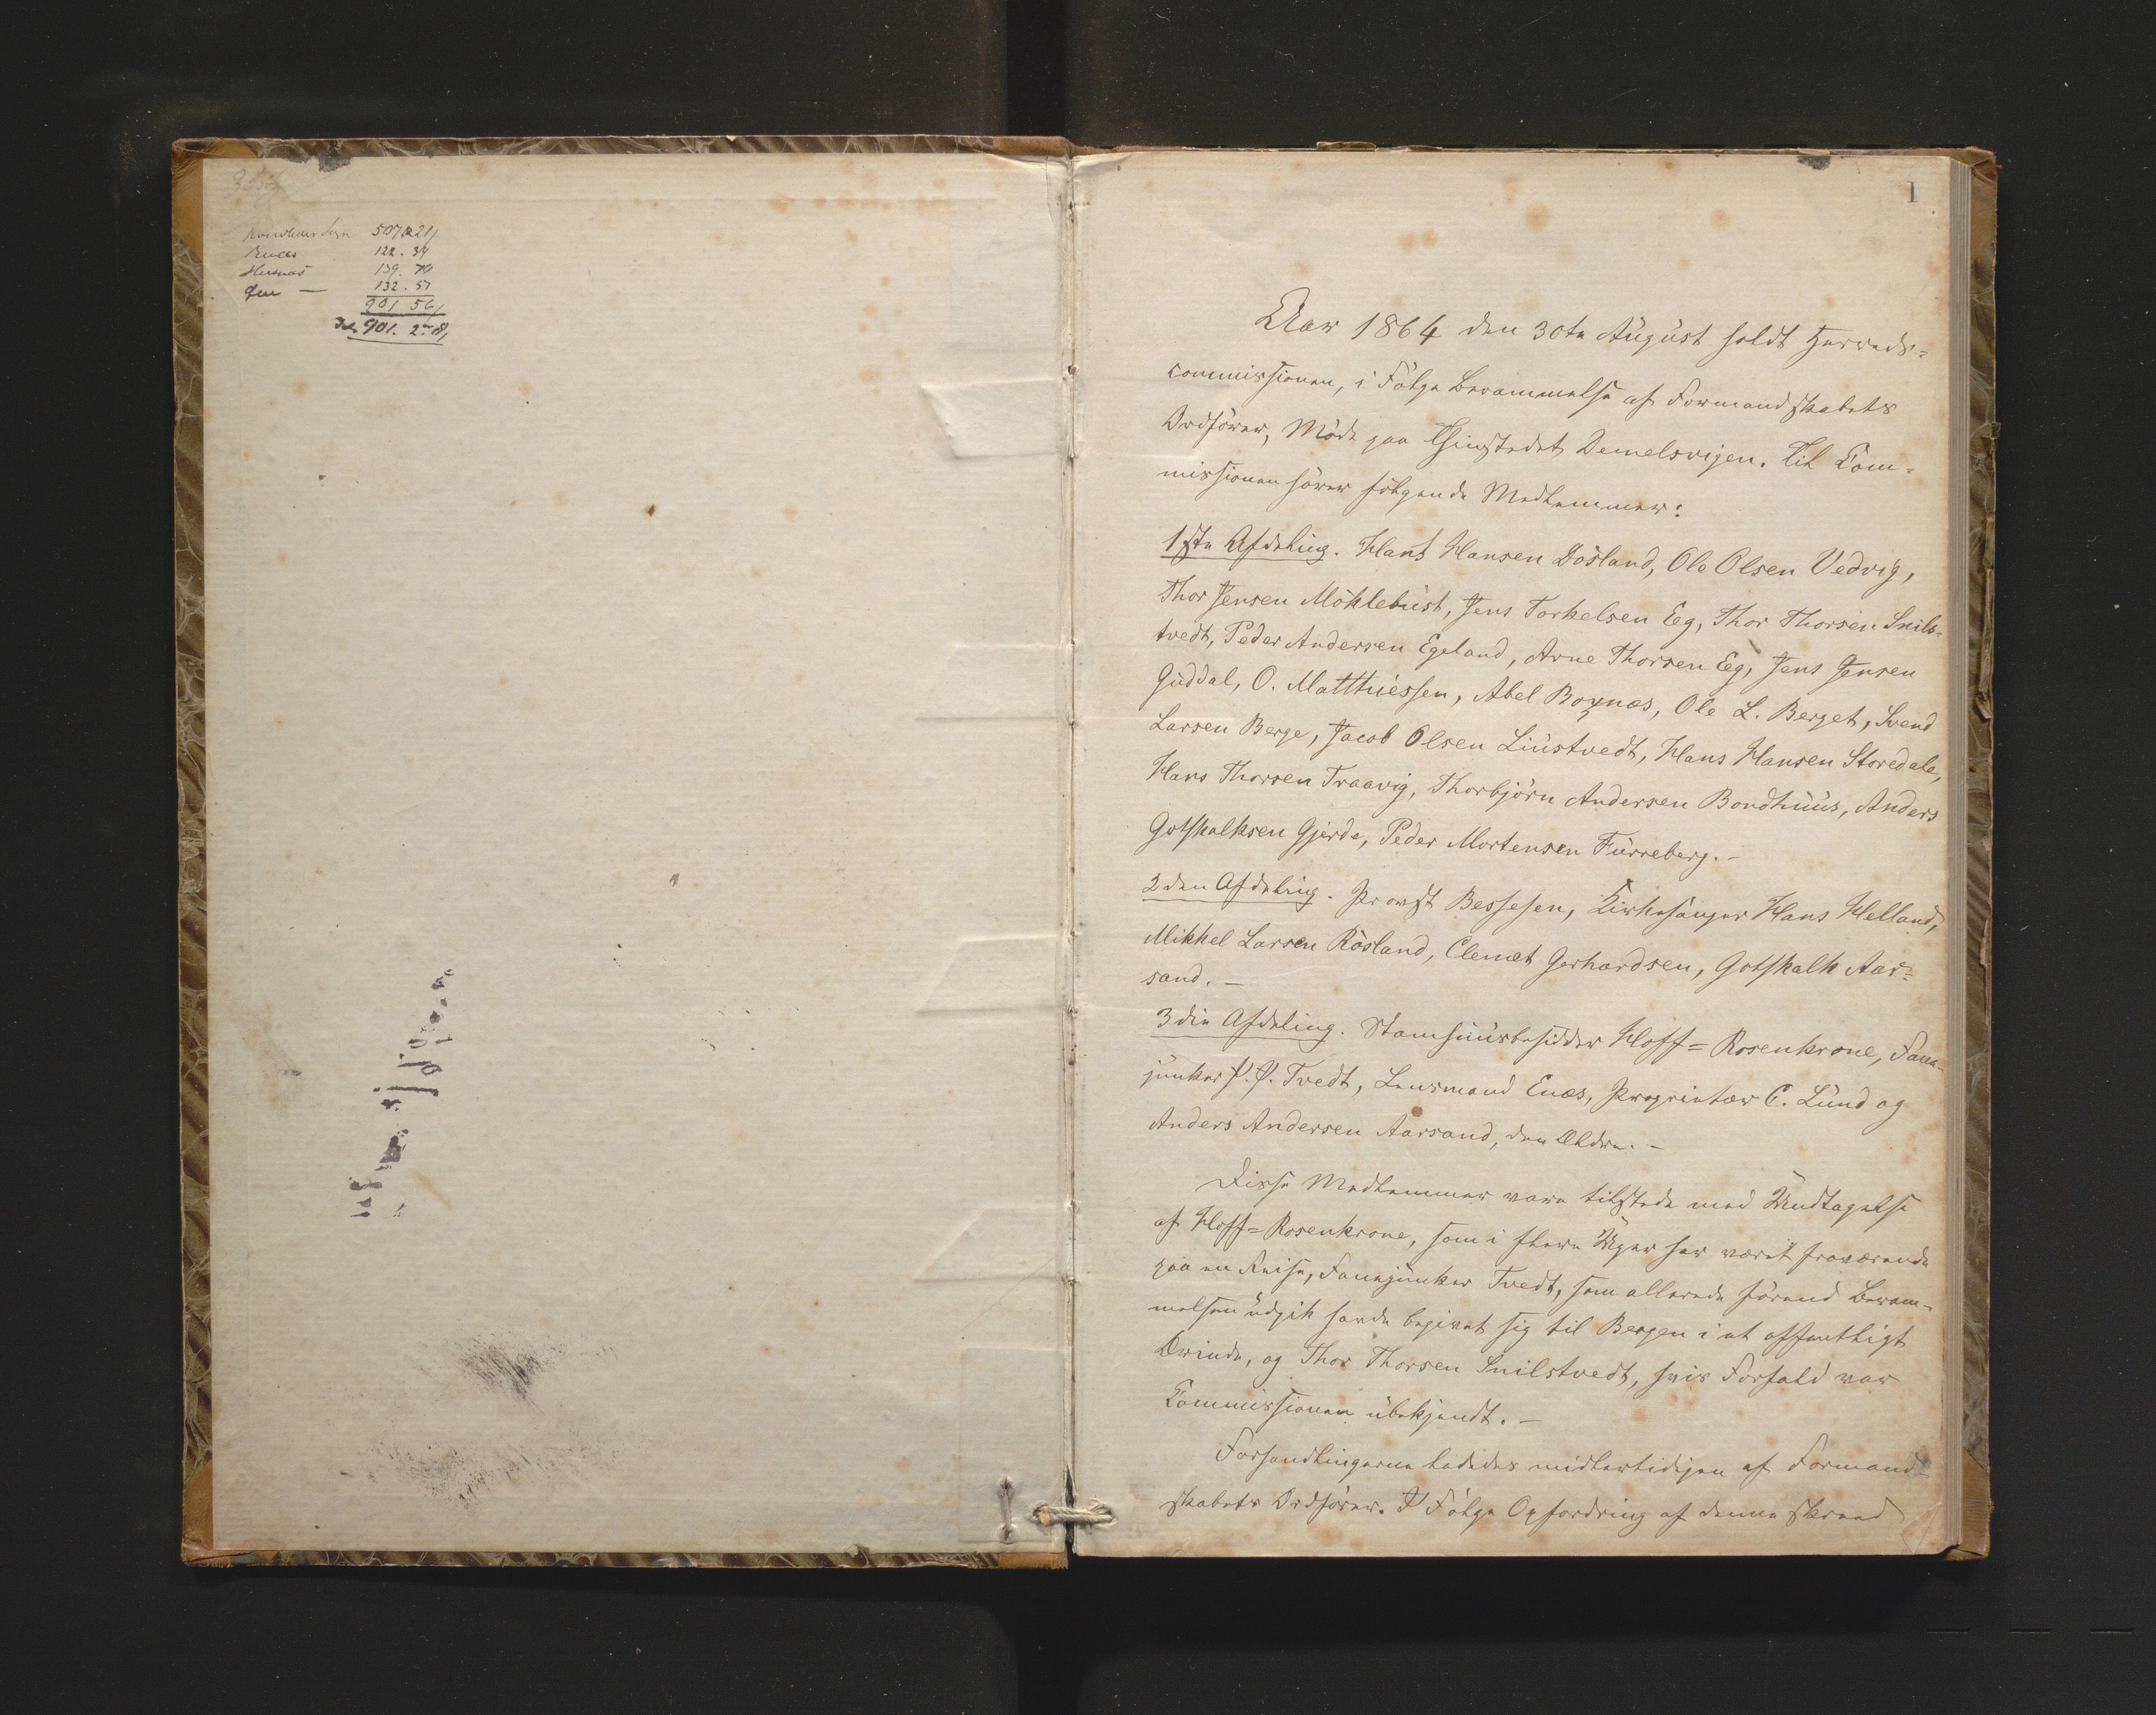 507 21
122. 34
Husnæs 139. 70
132. 51
901 56
901. 2 8
1
Aar 1864 den 30te August holdt Herreds-
commissionen, i Følge Berammelse af Formandskabets
Ordfører, Møde paa Thingstedet Demelsvigen. Til Com-
missionen hører følgende Medlemmer:
1ste Afdeling. Hans Hansen Døsland, Ole Olsen Vedvig,
Thor Jensen Møklebust, Jens Torkelsen Eeg, Thor Thorsen Snils-
tvedt, Peder Andersen Egeland, Arne Thorsen Eeg, Jens Jensen
Guddal, O. Matthiessen, Abel Boxnæs, Ole L. Berget, Svend
Larsen Berge, Jacob Olsen Liustvedt, Hans Hansen Storedale,
Hans Thorsen Traavig, Thorbjørn Andersen Bondhuus, Anders
Gotskalksen Gjerde, Peder Mortensen Furreberg. -
2den Afdeling. Provst Bessesen, Kirkesanger Hans Helland,
Mikkel Larsen Røsland, Clemet Gerhardsen, Gotskalk Aar-
sand. -
3die Afdeling. Stamhuusbesidder Hoff=Rosenkrone, Fane-
junker P. P. Tvedt, Lensmand Enæs, Proprietær C. Lund og
Anders Andersen Aarsand, den Ældre. -
Disse Medlemmer vare tilstede med Undtagelse
af Hoff=Rosenkrone, som i flere Uger har været fraværende
paa en Reise, Fanejunker Tvedt, som allerede førend Beram-
melsen udgik havde begivet sig til Bergen i et offentligt
Ærinde, og Thor Thorsen Snilstvedt, hvis Forfald var
Commissionen ubekjendt. -
Forhandlingerne lededes midlertidigen af Formand-
skabets Ordfører. I Følge Opfordring af denne skreed